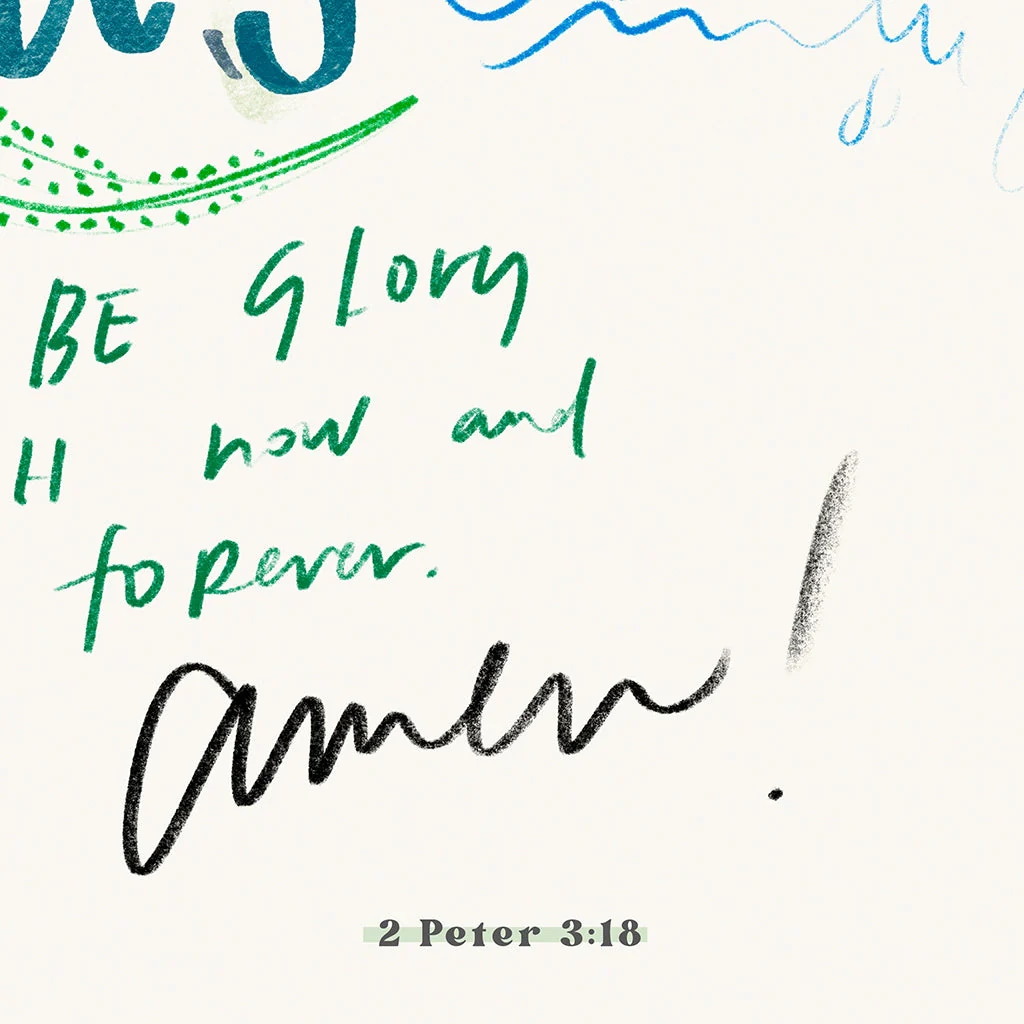 us
BE Glory
H now and
forever.
amen!
2 Peter 3:18